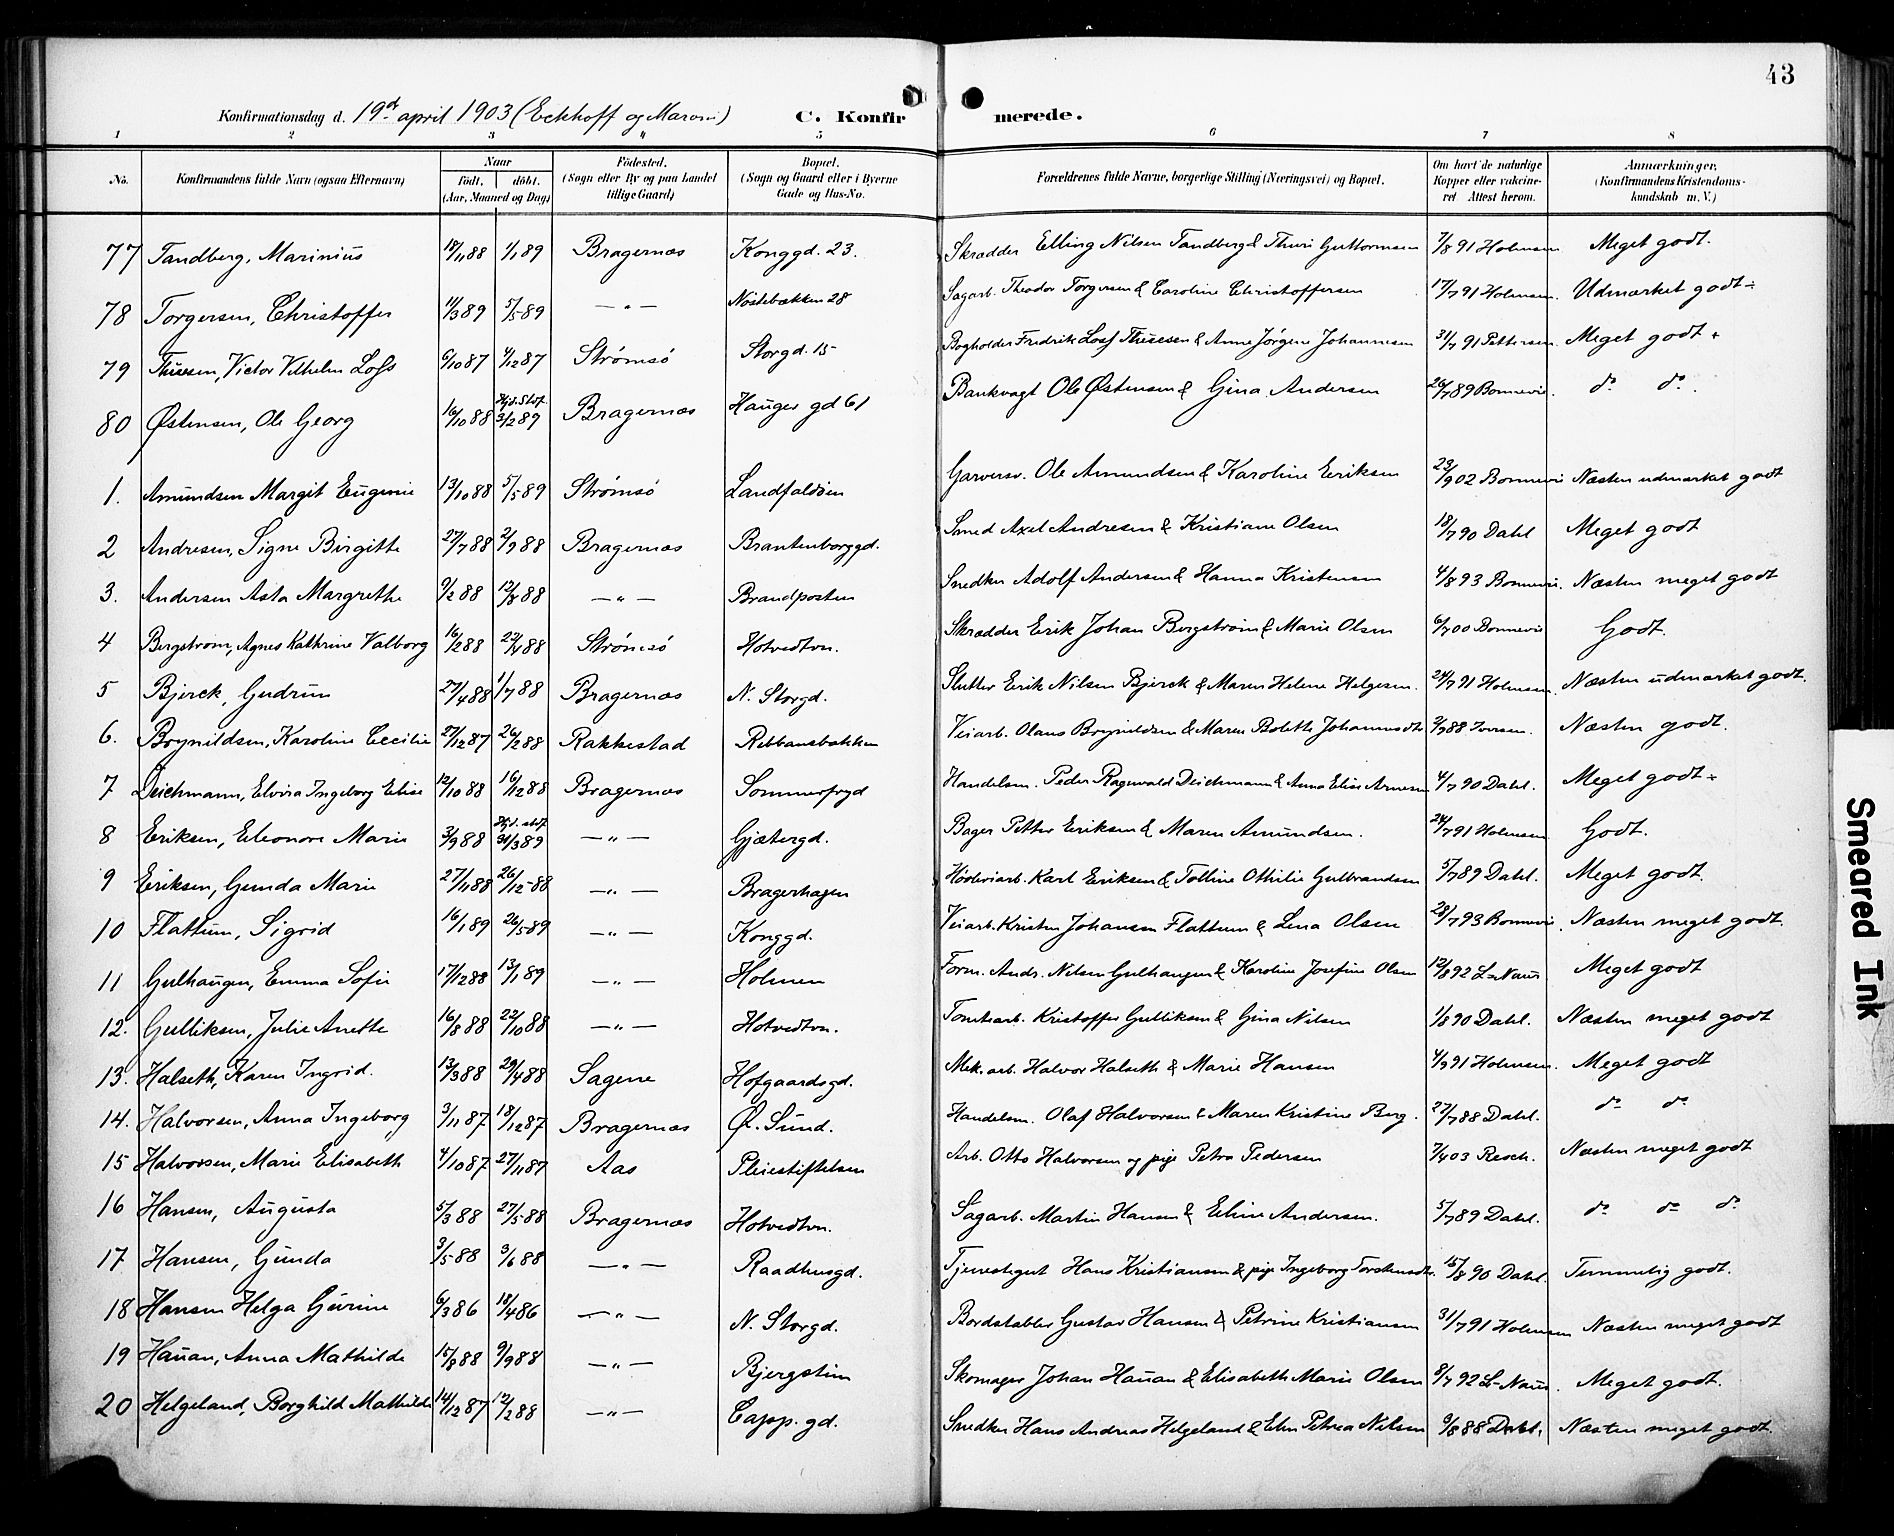 43
Konfirmationsdag d. 19de april 1903 (Eckhoff og Maroni) C. Konfirmerede.
1 2 3 4 5 6 7 8
No. Konfirmandens fulde Navn (ogsaa Efternavn) Naar født, døbt. (Aar, Maaned og Dag) Födested. (Sogn eller By og paa Landet tillige Gaard) Bopæl. (Sogn og Gaard eller i Byerne Gade og Hus-No. Forældrenes fulde Navne, borgerlige Stilling (Næringsvei) og Bopæl. Om havt de naturlige Kopper eller vakcineret Attest herom. Anmærkninger, (Konfirmandens Kristendomskundskab m. V.)
77 Tandberg, Marinius 18/11 88 1/1 89 Bragernæs Konggd. 23. Skrædder Elling Nilsen Tandberg & Thuri Guttormsen 7/8 91 Holmsen Meget godt.
78 Torgersen, Christoffer 11/3 89 5/5 89 —"— Nöstebækken 28 Sagarb. Theodor Torgersen & Caroline Christoffersen 17/7 91 Holmsen. Udmærket godt
79 Thuesen, Victor Vilhelm Loss 6/10 87 4/12 87 Strömsö Storgd. 15 Bogholder Fredrik Losf Thuesen & Anne Jörgine Johannesen 31/7 91 Pettersen. Meget godt
80 Østensen, Ole Georg 16/10 88 Hjd. Stof. 3/2 89 Bragernæs Hauges gd 61 Bankvagt Ole Østensen & Gina Andersen 26/7 89 Bonnevie. do do.
1. Amundsen Margit Eugenie 13/10 88 5/5 89 Strömsö Landfaldöen Garversv. Ole Amundsen & Karoline Eriksen 23/9 02 Bonnevie Næsten udmærket godt
2 Andresen, Signe Birgitte 27/7 88 2/9 88 Bragernæs Brantenborggd. Smed Axel Andresen & Kristiane Olsen 18/7 90 Dahl Meget godt
3. Andersen Asta Margrethe 9/2 88 12/8 88 —"— Brandposten Snedker Adolf Andersen & Hanna Kristensen 4/8 93 Bonnevie. Næsten meget godt
4 Bergström, Agnes Kathrine Valborg 16/2 88 22/4 88 Strömsö Hotvedtvn. Skrædder Erik Johan Bergström & Marie Olsen 6/7 00 Bonnevie Godt.
5 Bjerck, Gudrun 27/4 88 1/7 88 Bragernæs N. Storgd. Slutter Erik Nilsen Bjerck & Maren Helene Helgesen. 24/7 91 Holmsen. Næsten udmærket godt.
6. Brynildsen, Karoline Cecilie 27/12 87 26/2 88 Rakkestad Rebbansbakken Veiarb. Olaus Brynildsen & Maren Bolette Johannesdtr 2/9 88 Iversen. Næsten godt.
7 Deichmann, Elvira Ingeborg Elise 12/10 88 16/12 88 Bragernæs Sommerfryd Handelsm. Peder Ragnvald Deichmann & Anna Elise Arnesen 4/7 90 Dahl. Meget godt
8 Eriksen, Eleonore Marie 3/9 88 Hjd. stof 31/3 89 —"— Gjætergd. Bager Petter Eriksen & Maren Amundsen. 24/7 91 Holmsen Godt.
9 Eriksen, Gunda Marie 27/11 88 26/12 88 —"— Bragerhagen Karl Eriksen & Tolline Othilie Gulbrandsen 5/7 89 Dahl. Meget godt.
10 Flattum, Sigrid 16/1 89 26/5 89 —"— Konggd. Veiarb. Kristen Johansen Flattum & Lina Olsen 28/7 93 Bonnevie. Næsten meget godt.
11 Gulhaugen, Emma Sofie 17/12 88 13/1 89 —"— Holmen Form. Andr. Nilsen Gulhaugen & Karoline Josefine Olsen 12/8 92 L-Næss Meget godt
12. Gulliksen, Julie Anette 16/8 88 22/10 88 —"— Hotvedtvn. Tomtearb. Kristoffer Gulliksen & Gina Nilsen 1/8 90 Dahl. Næsten meget godt
13. Halseth, Karen Ingrid. 13/3 88 29/4 88 Sagene Hofgaardsgd. Mek. arb. Halvor Halseth & Marie Hansen 4/9 91 Holmsen. Meget godt
14. Halvorsen, Anna Ingeborg 3/11 87 18/12 87 Bragernæs Ø. Sund. Handelsm. Olaf Halvorsen & Maren Kristine Berg. 27/7 88 Dahl. do do
15 Halvorsen, Marie Elisabeth 4/10 87 27/11 87 Aas Pleiestiftelsen Arb. Otto Halvorsen og pige Petra Pedersen 7/4 03 Resch. Næsten meget godt
16 Hansen, Augusta 5/3 88 27/5 88 Bragernæs Hotvedtvn. Sagarb. Martin Hansen & Eline Andersen. 5/7 89 Dahl. do do do
17 Hansen, Gunda 3/5 88 3/6 88 —"— Raadhusgd. Tjenestegut Hans Kristiansen & pige Ingeborg Torstensdtr. 15/8 90 Dahl. Temmelig godt.
18 Hansen Helga Gurine 6/3 86 18/4 86 —"— N. Storgd. Bordstabler Gustav Hansen & Petrine Kristiansen 31/7 91 Holmsen Næsten meget godt
19 Hauan, Anna Mathilde 15/8 88 9/9 88 —"— Bjergstien Skomager Johan Hauan & Elisabeth Marie Olsen 8/7 92 L-Næss. Meget godt.
20 Helgeland, Borghild Mathilde 14/12 87 12/2 88 —"— Capp. gd. Snedker Hans Andreas Helgeland & Elen Petrea Nilsen 9/8 88 Dahl. Næsten meget godt.
Smeared Ink